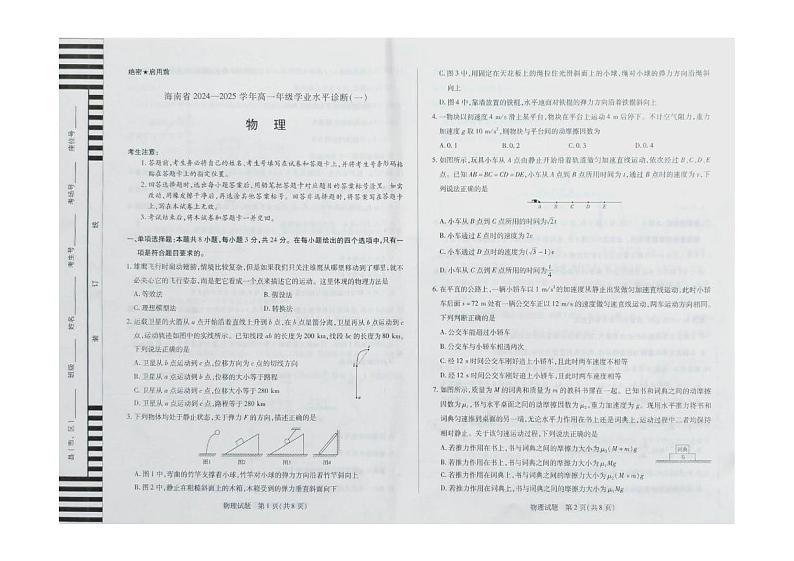 绝密★启用前
海南省 2024—2025 学年高一年级学业水平诊断(一)
物 理
考生注意:
1. 答题前,考生务必将自己的姓名、考生号填写在试卷和答题卡上,并将考生号条形码粘
贴在答题卡上的指定位置。
2. 回答选择题时,选出每小题答案后,用铅笔把答题卡对应题目的答案标号涂黑。如需改
动,用橡皮擦干净后,再选涂其他答案标号。回答非选择题时,将答案写在答题卡
上,写在本试卷上无效。
3. 考试结束后,将本试卷和答题卡一并交回。
一、单项选择题:本题共 8 小题,每小题 3 分,共 24 分。在每小题给出的四个选项中,只有一
项是符合题目要求的。
1. 雄鹰飞行时扇动翅膀,情境比较复杂,但是如果我们只关注雄鹰从哪里移动到了哪里,就不
必关心它的飞行姿态,而是把它看成一个点来描述它的运动。这里体现的物理方法是
A. 等效法 B. 假设法
C. 理想模型法 D. 转换法
2. 运载卫星的火箭从 a 点开始沿着直线上升到 b 点,在 b 点星箭分离,卫星再从 b 点运动到 c
点,运动轨迹如图中的实线所示。已知线段 ab 的长度为 200 km,线段 bc 的长度为 80 km,
下列说法正确的是
A. 卫星从 b 点运动到 c 点,位移方向为 c 点的切线方向
B. 卫星从 b 点运动到 c 点,位移大小等于路程
C. 卫星从 a 点运动到 c 点,位移大小等于 280 km
D. 卫星从 a 点运动到 c 点,路程等于 280 km
3. 下列物体均处于静止状态,关于弹力 F 的方向,描述正确的是
图1 图2 图3 图4
A. 图 1 中,弯曲的竹竿支撑着小球,竹竿对小球的弹力方向沿着竹竿斜向上
B. 图 2 中,静止在粗糙斜面上的木箱,木箱受到的弹力垂直斜面向下
物理试题 第 1 页(共 8 页)
C. 图 3 中,用固定在天花板上的绳拉住光滑斜面上的小球,绳对小球的弹力方向沿绳斜
向上
D. 图 4 中,靠墙放置的铁棍,水平地面对铁棍的弹力方向沿着铁棍斜向上
4. 一物块以初速度 4 m/s 滑上某平台,物块在平台上运动 4 m 后停下。不计空气阻力,重力
加速度 g 取 10 m/s²,则物块与平台间的动摩擦因数为
A. 0.1 B. 0.2 C. 0.3 D. 0.4
5. 如图所示,玩具小车从 A 点由静止开始沿着轨道做匀加速直线运动,依次经过 B、C、D、E
点。已知 AB=BC=CD=DE,小车从 A 点到 B 点的时间为 t,到 B 点时的速度为 v,下
列说法正确的是
A. 小车从 B 点到 C 点所用的时间为√2t
B. 小车通过 E 点时的速度为 2v
C. 小车通过 D 点时的速度为(√3−1)v
D. 小车从 D 点到 E 点所用的时间为t/4
6. 在平直的公路上,一辆小轿车以 1 m/s² 的加速度从静止出发做匀加速直线运动,此时小轿
车后面 s=72 m 处有一辆公交车正以 12 m/s 的速度做匀速直线运动,两车运动方向相同。
下列判断正确的是
A. 公交车能超过小轿车
B. 公交车与小轿车相遇两次
C. 经 12 s 时间公交车刚好追上小轿车,且此时两车速度不相等
D. 经 12 s 时间公交车刚好追上小轿车,且此时两车速度相等
7. 如图所示,质量为 M 的词典和质量为 m 的教科书摞在一起。已知书和词典之间的动摩擦
因数为 μ₁,书与水平桌面之间的动摩擦因数为 μ₂,重力加速度为 g。现用水平推力将书和
词典匀速推到桌面的另一端,无论水平力作用在书上还是词典上,运动过程中二者均保持
相对静止。关于该匀速运动过程,下列说法正确的是
词典
书
A. 若推力作用在书上,书与词典之间的摩擦力大小为 μ₂(M+m)g
B. 若推力作用在书上,书与词典之间的摩擦力大小为 μ₁Mg
C. 若推力作用在词典上,书与词典之间的摩擦力大小为 μ₂(M+m)g
D. 若推力作用在词典上,书与词典之间的摩擦力大小为 μ₁Mg
物理试题 第 2 页(共 8 页)
座位号
考场号
考生号
姓名
班级
县(市、区)
线
订
装